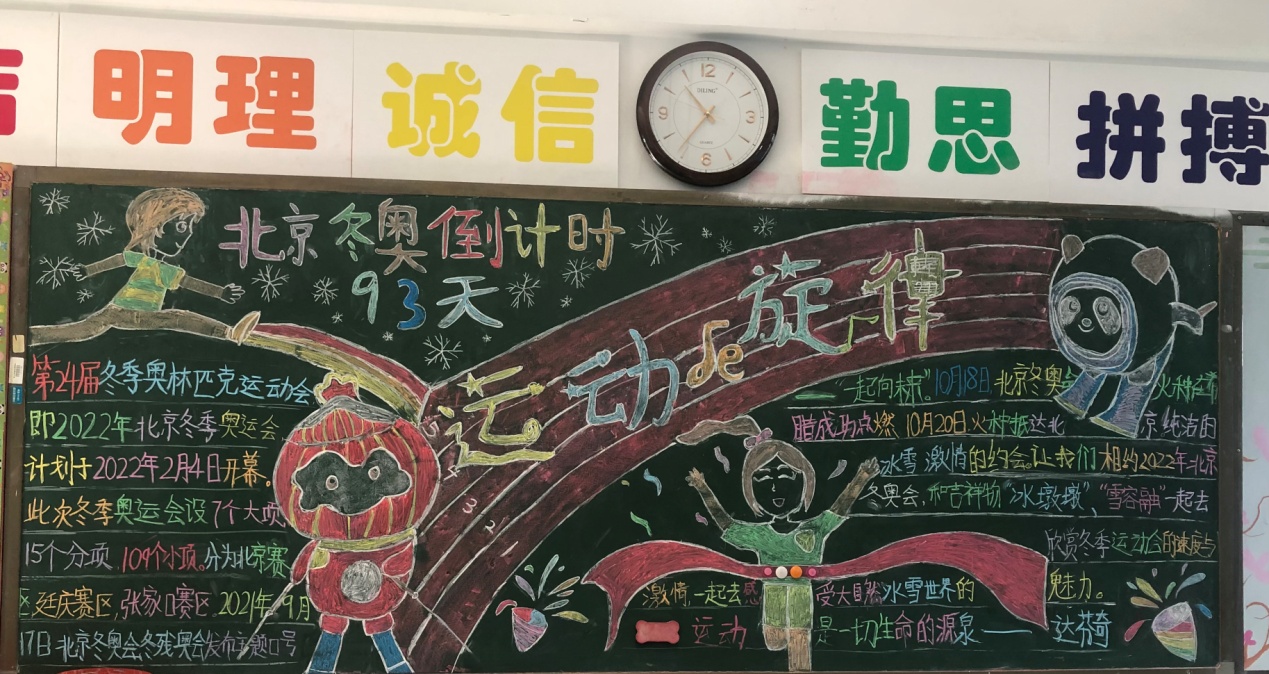 明理 诚信 勤思 拼搏
12
9 3
6
北京冬奥倒计时
93天
运动de旋律
第24届冬季奥林匹克运动会
即2022年北京冬季奥运会
计划于2022年2月4日开幕。
此次冬季奥运会设7个大项
15个分项,109个小项。分为北京赛
区 延庆赛区,张家口赛区 2021年9月
17日北京冬奥会冬残奥会发布主题口号
3 2 1
"一起向未来"10月18日,北京冬奥会 火种在希
腊成功点燃 10月20日,火种抵达北京 纯洁的
冰雪 激情的约会。让我们 相约2022年北京
冬奥会,和吉祥物"冰墩墩","雪容融"一起去
欣赏冬季运动会的速度与
激情,一起去感受大自然冰雪世界的 魅力。
运动 是一切生命的源泉——达芬奇